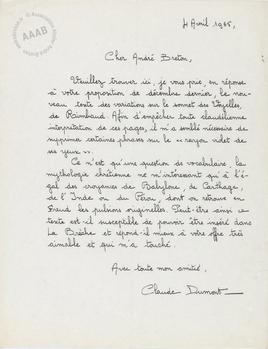 4 Avril 1965,
Cher André Breton,
Veuillez trouver ici, je vous prie, en réponse
à votre proposition de décembre dernier, le nou-
veau texte des variations sur le sonnet des Voyelles,
de Raimbaud. Afin d'empêcher toute claudélienne
interprétation de ces pages, il m'a semblé nécessaire de
supprimer certaines phrases sur le "rayon violet de
ses yeux".
Ce n'est qu'une question de vocabulaire la
mythologie chrétienne ne m'intéressant qu'à l'é-
gal des croyances de Babylone, de Carthage,
de l'Inde ou du Pérou, dont on retrouve en
Freud les pulsions originelles. Peut-être ainsi ce
texte est-il susceptible de pouvoir être inséré dans
La Brèche et répond-il mieux à votre offre très
aimable et qui m'a touché.
Avec toute mon amitié.
Claude Dumont
AAAB